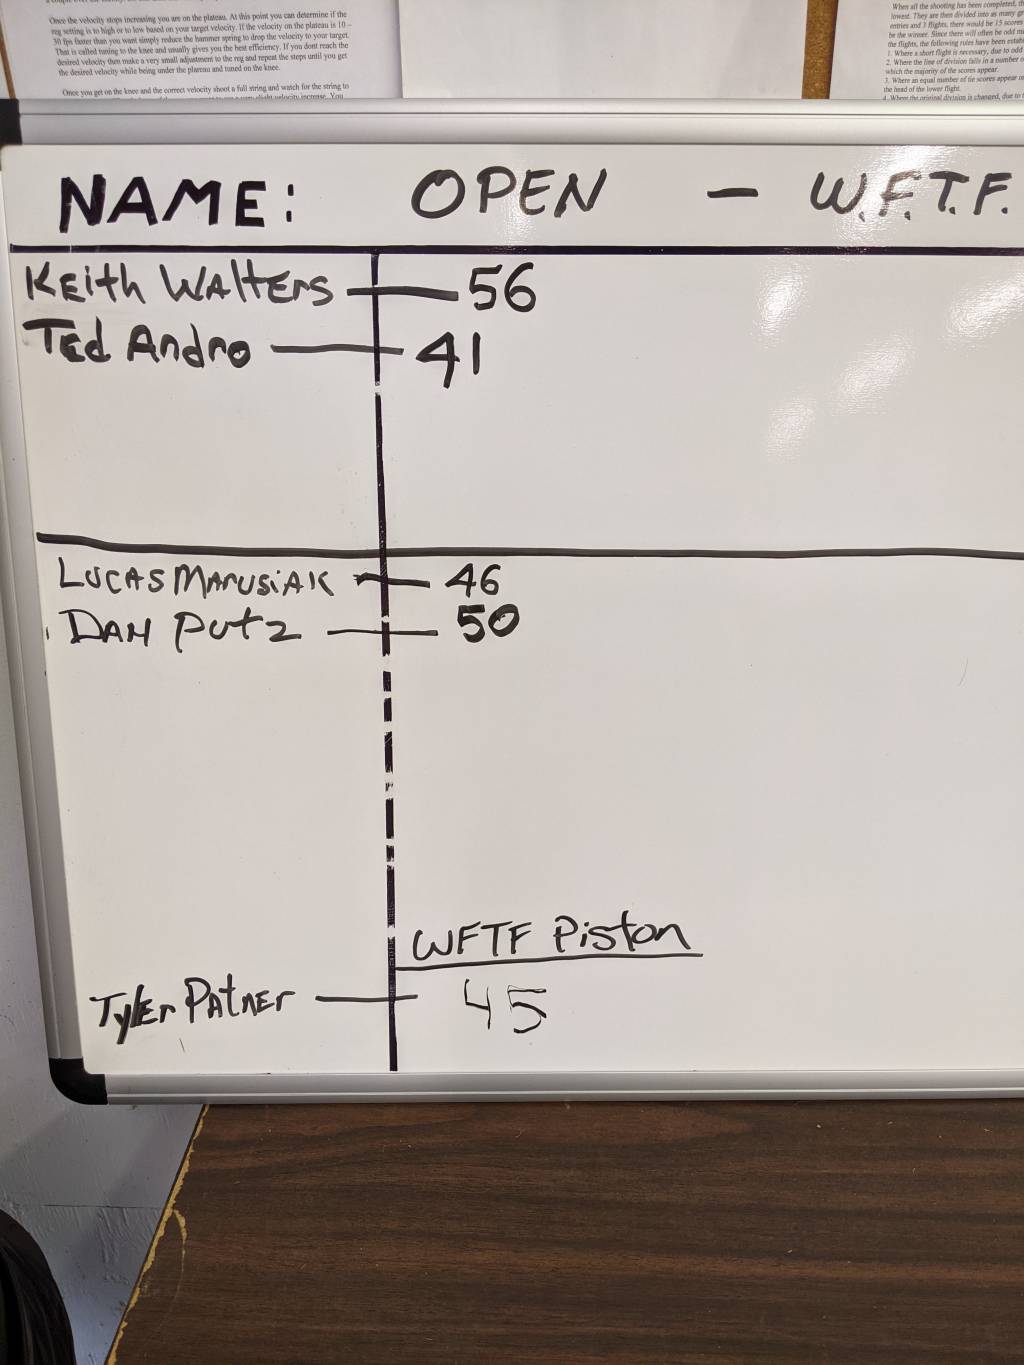 Once the velocity stops increasing you are on the plateau. At this point you can determine if the
reg setting is to high or to low based on your target velocity. If the velocity on the plateau is 10 –
30 fps faster than you want simply reduce the hammer spring to drop the velocity to your target.
That is called tuning to the knee and usually gives you the best efficiency. If you dont reach the
desired velocity then make a very small adjustment to the reg and repeat the steps until you get
the desired velocity while being under the plateau and tuned on the knee.
Once you get on the knee and the correct velocity shoot a full string and watch for the string to
When all the shooting has been completed,
lowest. They are then divided into as many
entries and 3 flights, there would be 15 scores
be the winner. Since there will often be odd
the flights, the following rules have been
1. Where a short flight is necessary, due to odd
2. Where the line of division falls in a number
which the majority of the scores appear.
3. Where an equal number of tie scores appear
the head of the lower flight.
4. Where the original division is changed, due to
NAME: OPEN - W.F.T.F.
KEith WAltErs 56
TEd Andro 41
LUCAS MArUSiAK 46
DAN Putz 50
WFTF Piston
TylEr PAtnEr 45